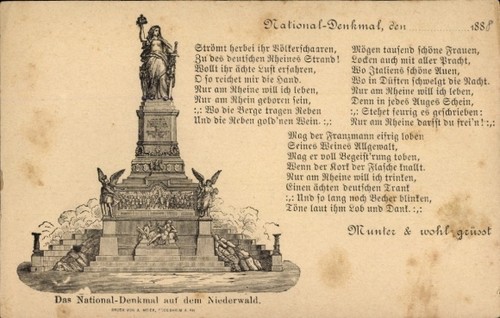 National-Denkmal, den 188
Strömt herbei ihr Völkerschaaren,
Zu des deutschen Rheines Strand!
Wollt ihr ächte Lust erfahren,
O so reichet mir die Hand.
Nur am Rheine will ich leben,
Nur am Rhein geboren sein,
:,: Wo die Berge tragen Reben
Und die Reben gold'nen Wein. :,:
Mögen tausend schöne Frauen,
Locken auch mit aller Pracht,
Wo Italiens schöne Auen,
Wo in Düften schwelgt die Nacht.
Nur am Rheine will ich leben,
Denn in jedes Auges Schein,
:,: Stehet feurig es geschrieben:
Nur am Rheine darfst du frei'n! :,:
Mag der Franzmann eifrig loben
Seines Weines Allgewalt,
Mag er voll Begeist'rung toben,
Wenn der Kork der Flasche knallt.
Nur am Rheine will ich trinken,
Einen ächten deutschen Trank
:,: Und so lang noch Becher blinken,
Töne laut ihm Lob und Dank. :,:
Munter & wohl grüsst
Das National-Denkmal auf dem Niederwald.